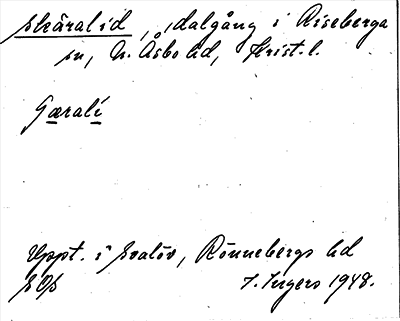 Skäralid, dalgång i Riseberga
sn, N. Åsbo hd, Krist. l.
Gæralí
Uppt. i Svalöv, Rönnebergs hd
1948.